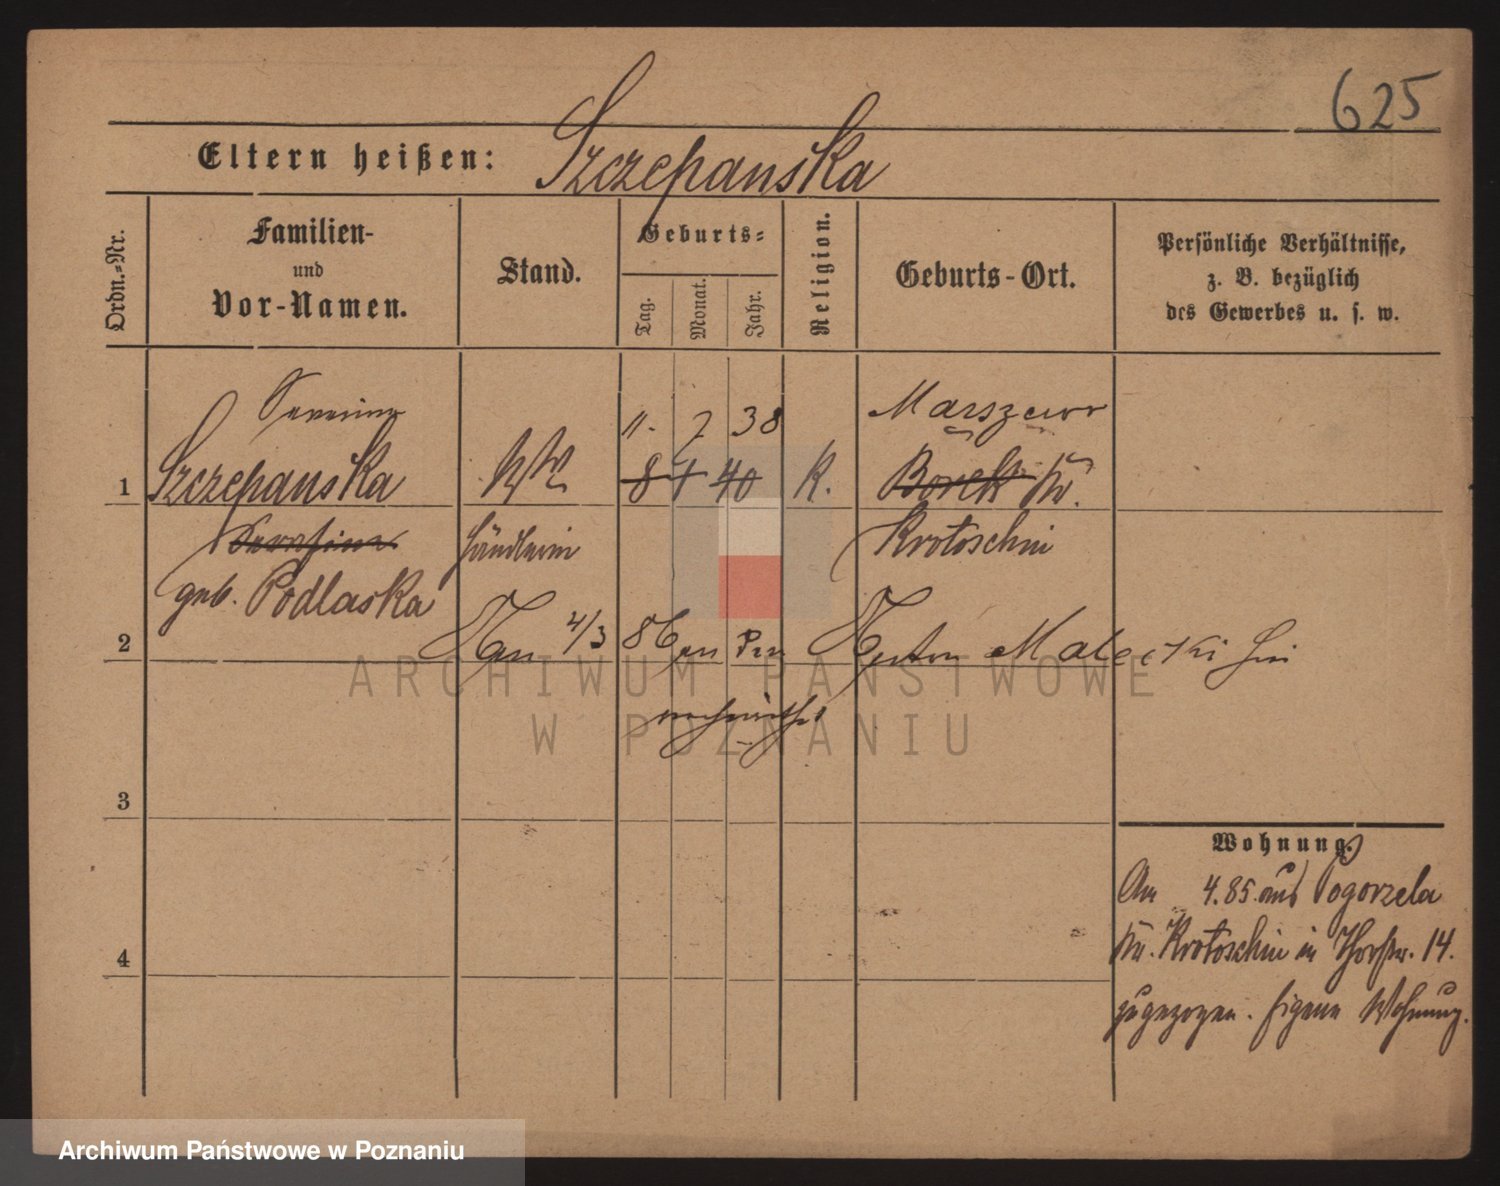 625
Eltern heißen: Szczepanska
Ordn.=Nr.
Familien-
und
Vor-Namen.
Stand.
Geburts=
Tag.
Monat.
Jahr.
Religion.
Geburts-Ort.
Persönliche Verhältnisse,
z. B. bezüglich
des Gewerbes u. s. w.
11. 7 38 Marszew
1 Szczepanska 8 1 40 K. Borek Kr.
Serafina Händlerin Krotoschin
geb. Podlaska
2 4/3 86 Anton Malecki
ARCHIWUM PAŃSTWOWE
W POZNANIU
3
Wohnung.
Am 4.85. aus Pogorzela
Kr. Krotoschin in 14.
4
zugezogen. Eigene Wohnung.
Archiwum Państwowe w Poznaniu